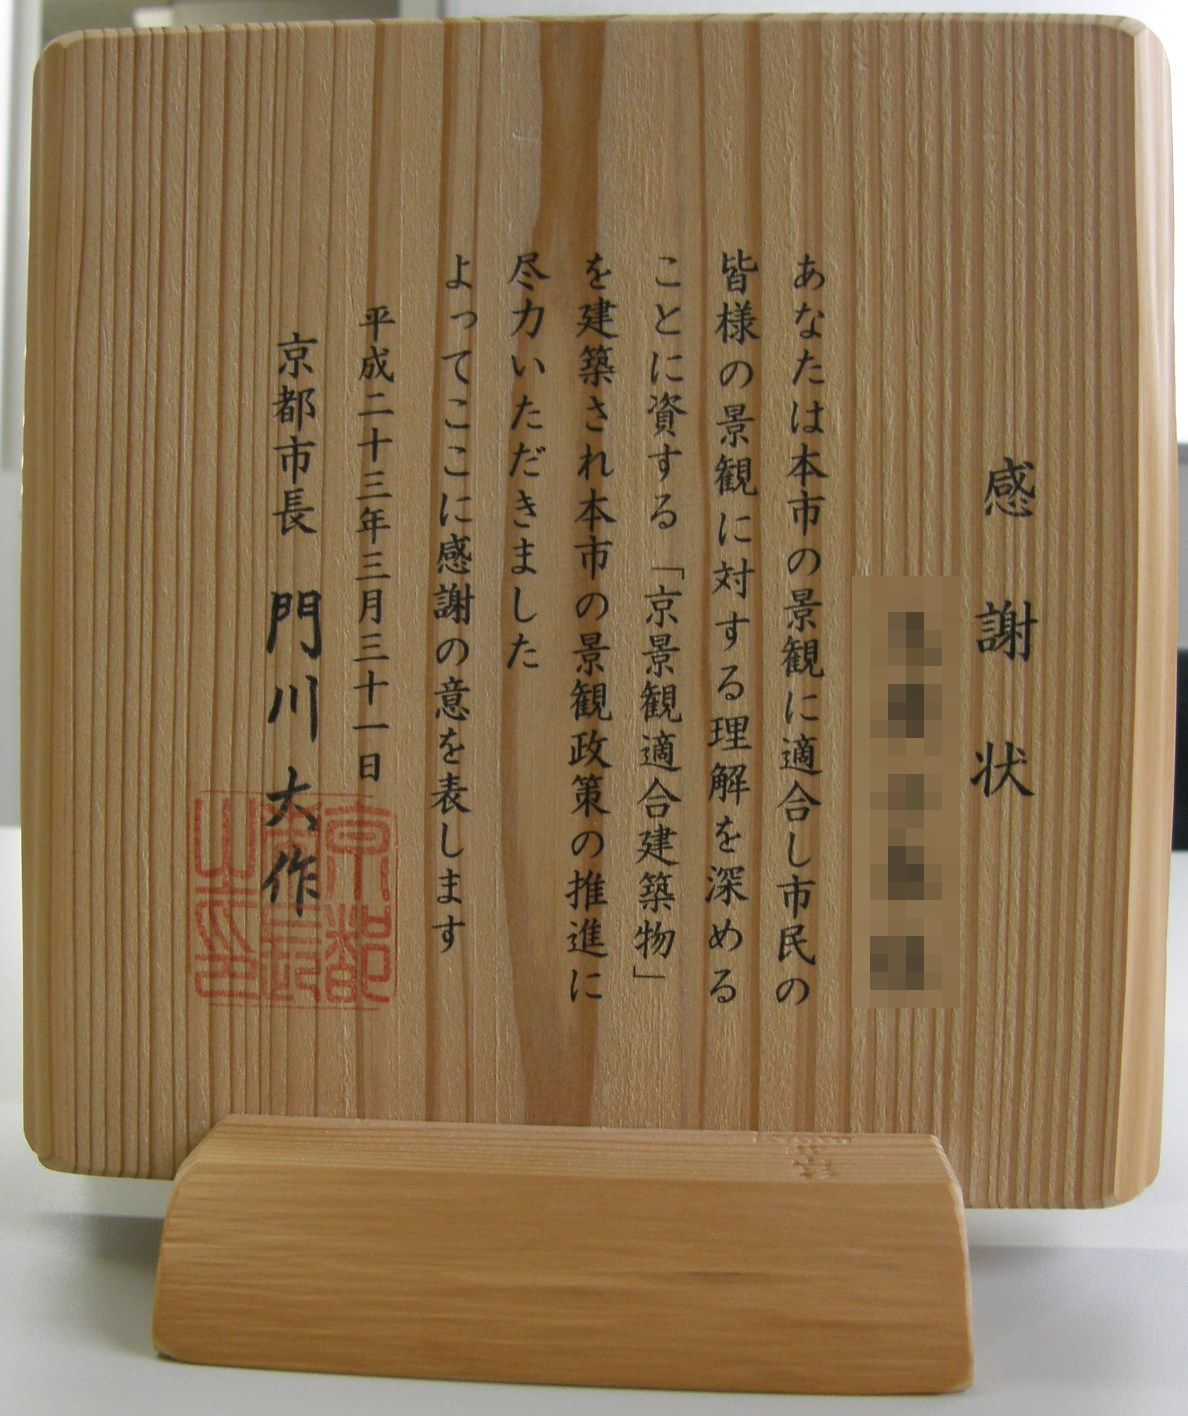 感謝状
あなたは本市の景観に適合し市民の
皆様の景観に対する理解を深める
ことに資する「京景観適合建築物」
を建築され本市の景観政策の推進に
尽力いただきました
よってここに感謝の意を表します
平成二十三年三月三十一日
京都市長 門川大作